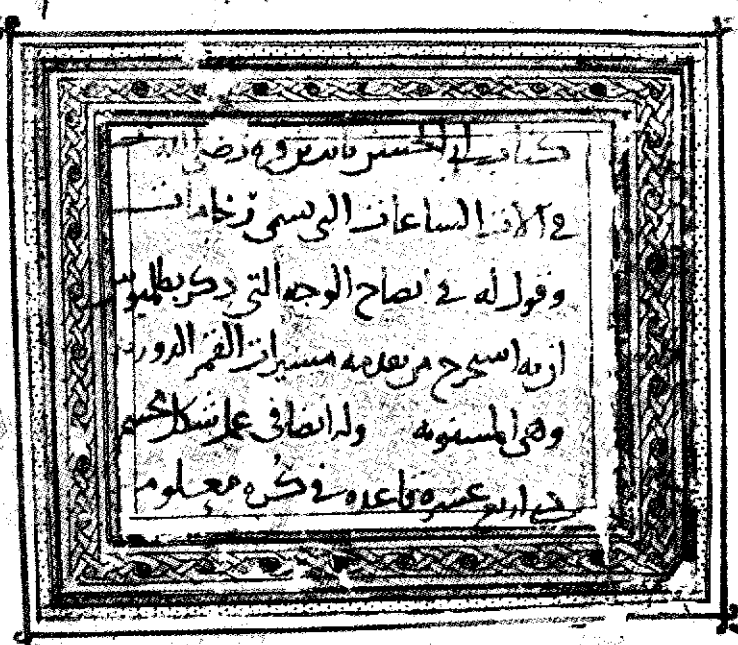 كتاب ابي الحسن ثابت بن قره رضي الله عنه
في آلات الساعات التي تسمى رخامات
وقول له في ايضاح الوجه الذي ذكر بطلميوس
ان به استخرج من تقدمه مسيرات القمر الدورية
وهي المستوية وله ايضا في عمل شكل مجسم
ذي اربع عشرة قاعدة في كره معلومه